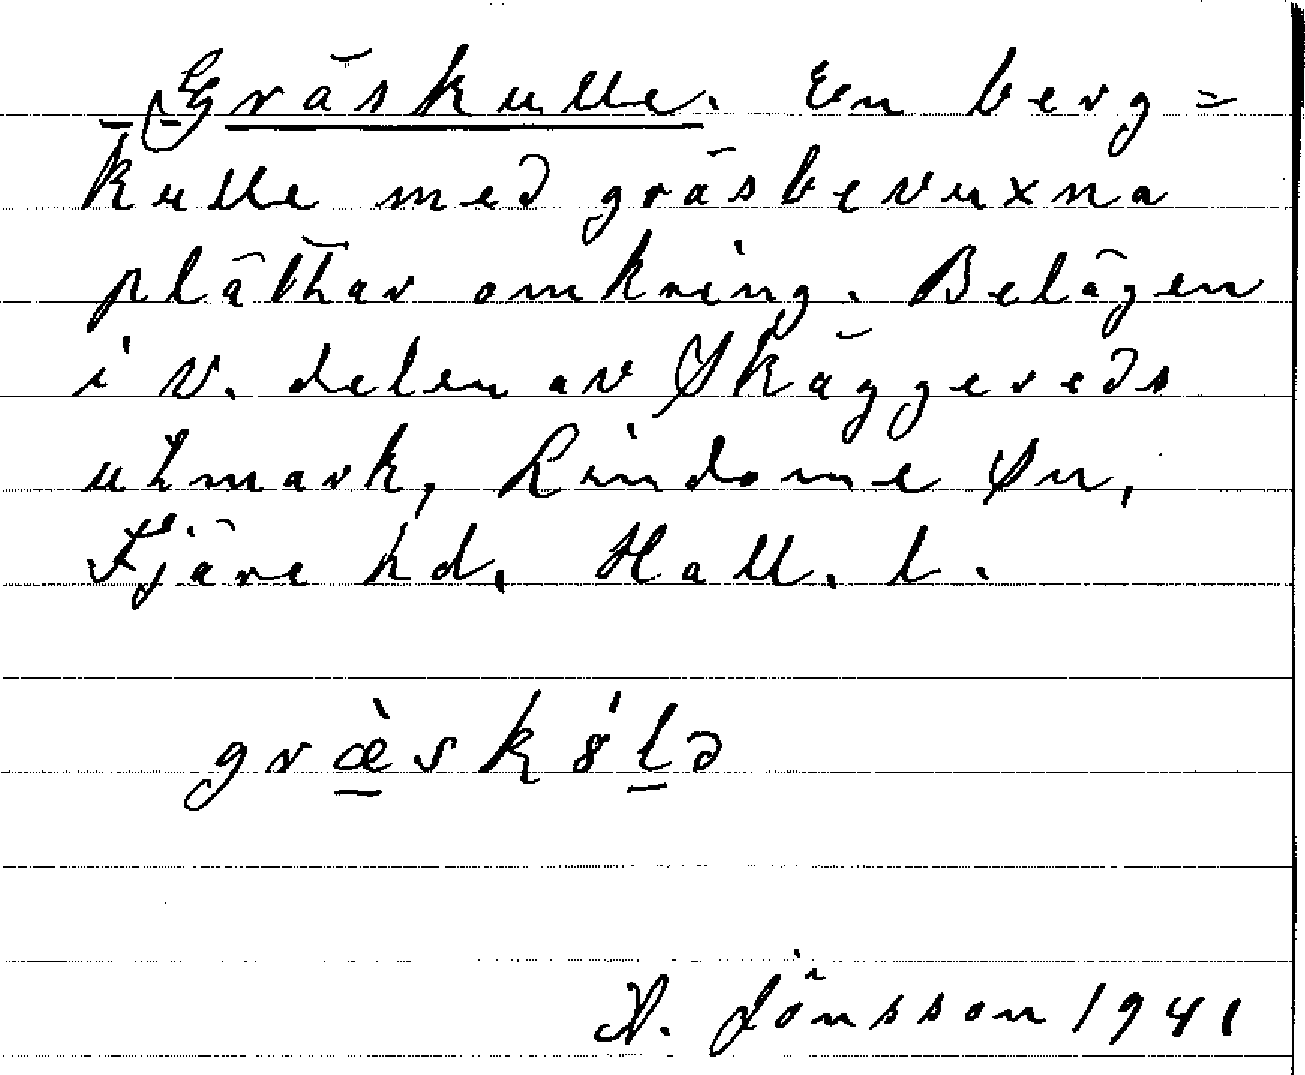 Gräskulle. En berg=
kulle med gräsbevuxna
plättar omkring. Belägen
i v. delen av Skäggereds
utmark, Lindome sn,
Fjäre hd, Hall. l.
græ̀skȣ́lə
A. Jönsson 1941